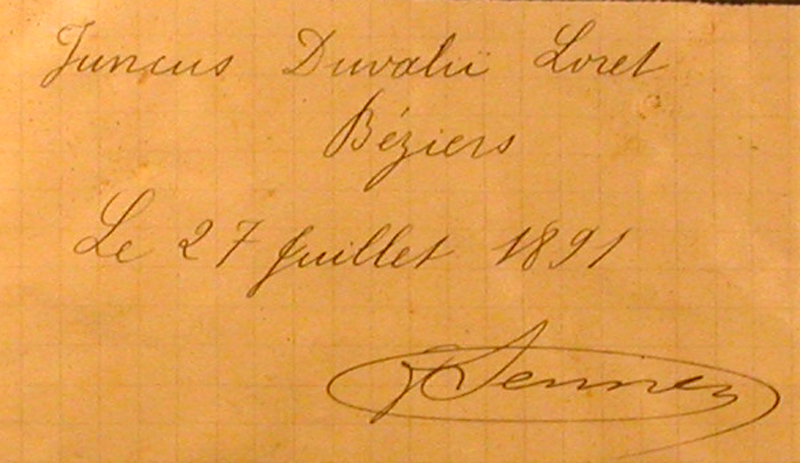 Juncus Duvalii Loret
Béziers
Le 27 Juillet 1891